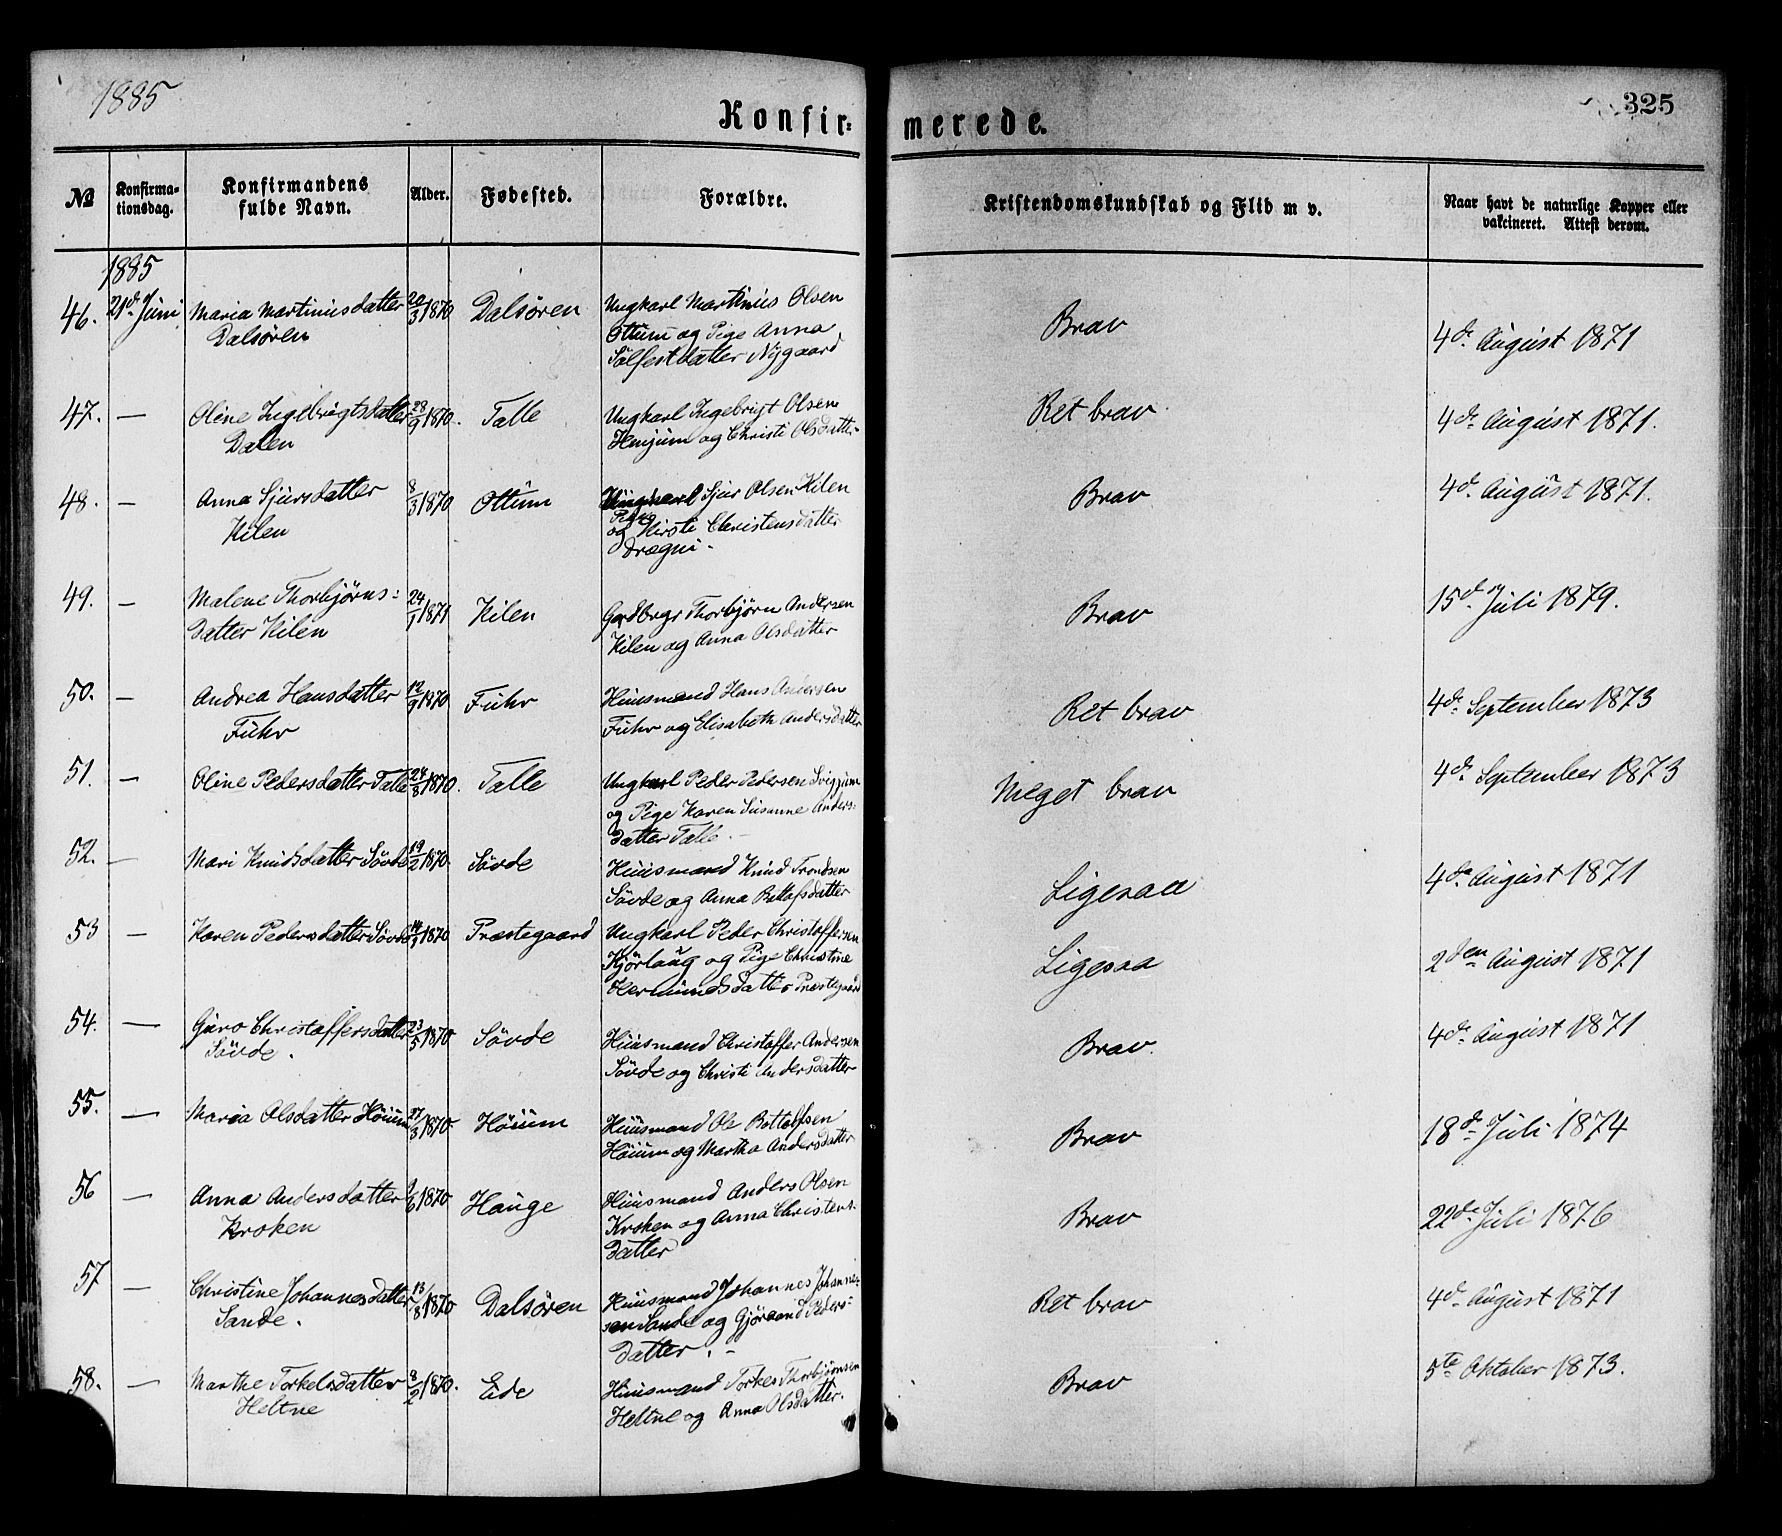 1885
325
Konfir= merede.
No Konfirma- Konfirmandens Alder. Fødested. Forældre. Kristendomskundskab og Flid m v. Naar havt de naturlige Kopper eller
tionsdag. fulde Navn. vakcineret. Attest derom.
1885
46. 21de Juni Maria Martinusdatter 20/3 1870 Dalsøren Ungkarl Martinus Olsen Brav 4de August 1871
Dalsøren Ottum og Pige Anna
Sølfestdatter Nygaard
47. — Oline Ingebrigtsdatter 28/9 1870. Talle Ungkarl Ingebrigt Olsen Ret brav 4de August 1871.
Dalen Henjum og Christi Olsdatter
48. — Anna Sjursdatter 8/3 1870 Ottum Ungkarl Sjur Olsen Kilen Brav 4de August 1871.
Kilen og Pige Kirsti Christensdatter
Drægni.
49. — Malene Thorbjørns= 24/1 1871 Kilen Gardbrgr Thorbjørn Andersen Brav 15de Juli 1879.
datter Kilen Kilen og Anna Olsdatter
50. — Andrea Hansdatter 12/9 1870 Fuhr Huusmand Hans Andersen Ret brav 4de September 1873
Fuhr Fuhr og Elisabeth Andersdatter
51. — Oline Pedersdatter Talle 24/8 1870. Talle Ungkarl Peder Pedersen Sviggum Meget brav 4de September 1873
og Pige Karen Susanne Anders=
datter Talle. —
52. — Mari Knudsdatter Søvde 19/2 1870. Søvde Huusmand Knud Trondsen Ligesaa 4de August 1871
Søvde og Anna Botolfsdatter
53 — Karen Pedersdatter Søvde 1870 Præstegaard Ungkarl Peder Christoffersen Ligesaa 2den August 1871
Kjørlaug og Pige Christine
Hermundsdatter Præstegaard
54. — Guro Christoffersdatter 23/5 1870 Søvde Huusmand Christoffer Andersen Brav. 4de August 1871
Søvde. Søvde og Christi Andersdatter
55. — Maria Olsdatter Høium 27/3 1870 Høium Huusmand Ole Bottolfsen Brav 18de Juli 1874
Høium og Martha Andersdatter
56 — Anna Andersdatter 1870 Hauge Huusmand Anders Olsen Brav 22de Juli 1876
Kroken Kroken og Anna Christens=
datter
57 — Christine Johannesdatter 13/8 1870 Dalsøren Huusmand Johannes Johannes= Ret brav 4de August 1871
Sande. sen Sande og Gjørond Peders=
datter. —
58. — Marthe Torkelsdatter 8/2 1870. Eide Huusmand Torkel Thorbjørnsen Brav 5te Oktober 1873.
Heltne Heltne og Anna Olsdatter.